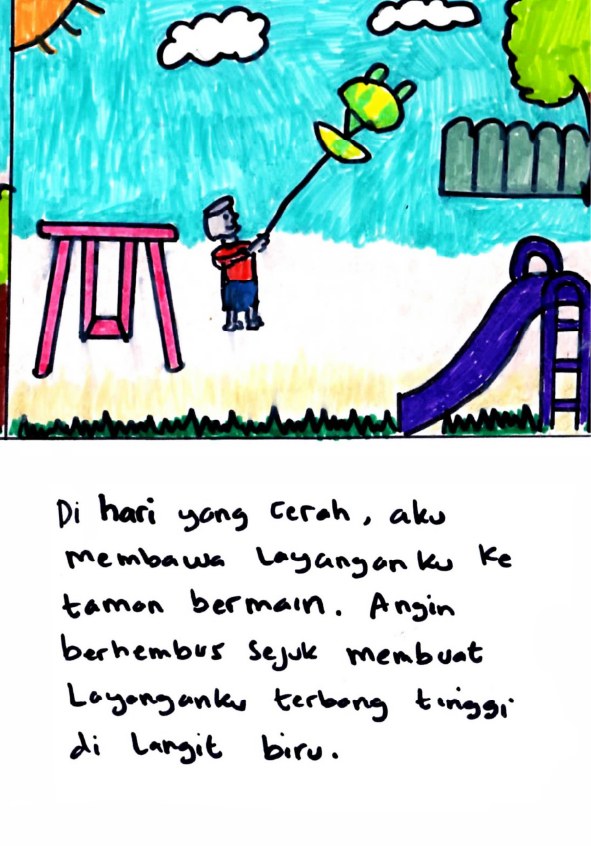 Di hari yang cerah, aku
membawa layanganku ke
taman bermain. Angin
berhembus sejuk membuat
Layanganku terbang tinggi
di langit biru.